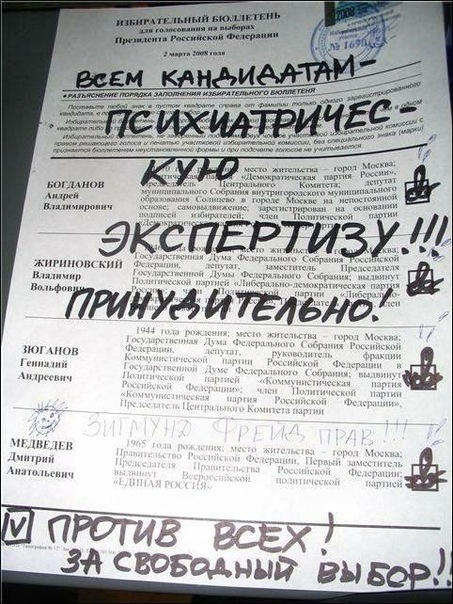 ИЗБИРАТЕЛЬНЫЙ БЮЛЛЕТЕНЬ
для голосования на выборах
Президента Российской Федерации
2 марта 2008 года
2008
ВСЕМ КАНДИДАТАМ-
РАЗЪЯСНЕНИЕ ПОРЯДКА ЗАПОЛНЕНИЯ ИЗБИРАТЕЛЬНОГО БЮЛЛЕТЕНЯ
Поставьте любой знак в пустом квадрате справа от фамилии только одного зарегистрированного
ПСИХИАТРИЧЕС-
правом решающего голоса и печатью участковой избирательной комиссии, без специального знака (марки)
признается бюллетенем неустановленной формы и при подсчете голосов не учитывается
КУЮ
БОГДАНОВ
Андрей
Владимирович
место жительства – город Москва;
«Демократическая партия России»,
Председатель Центрального Комитета; депутат
муниципального Собрания внутригородского муниципального
образования Солнцево в городе Москве на непостоянной
основе; самовыдвижение; зарегистрирован на основании
подписей избирателей; член Политической партии
ЭКСПЕРТИЗУ!!!
ЖИРИНОВСКИЙ
Владимир
Вольфович
место жительства – город Москва;
Государственная Дума Федерального Собрания Российской
Федерации, депутат, заместитель Председателя
Государственной Думы Федерального Собрания; выдвинут
Политической партией «Либерально-демократическая партия
ПРИНУДИТЕЛЬНО!
ЗЮГАНОВ
Геннадий
Андреевич
1944 года рождения; место жительства – город Москва;
Государственная Дума Федерального Собрания Российской
Федерации, депутат, руководитель фракции
Коммунистической партии Российской Федерации в
Государственной Думе Федерального Собрания; выдвинут
Политической партией «Коммунистическая партия
Российской Федерации»; член Политической партии
«Коммунистическая партия Российской Федерации»,
Председатель Центрального Комитета партии
ЗИГМУНД ФРЕЙД ПРАВ!!!
МЕДВЕДЕВ
Дмитрий
Анатольевич
1965 года рождения; место жительства – город Москва;
Правительство Российской Федерации, Первый заместитель
Председателя Правительства Российской Федерации;
выдвинут Всероссийской политической партией
"ЕДИНАЯ РОССИЯ"
V ПРОТИВ ВСЕХ!
ЗА СВОБОДНЫЙ ВЫБОР!!